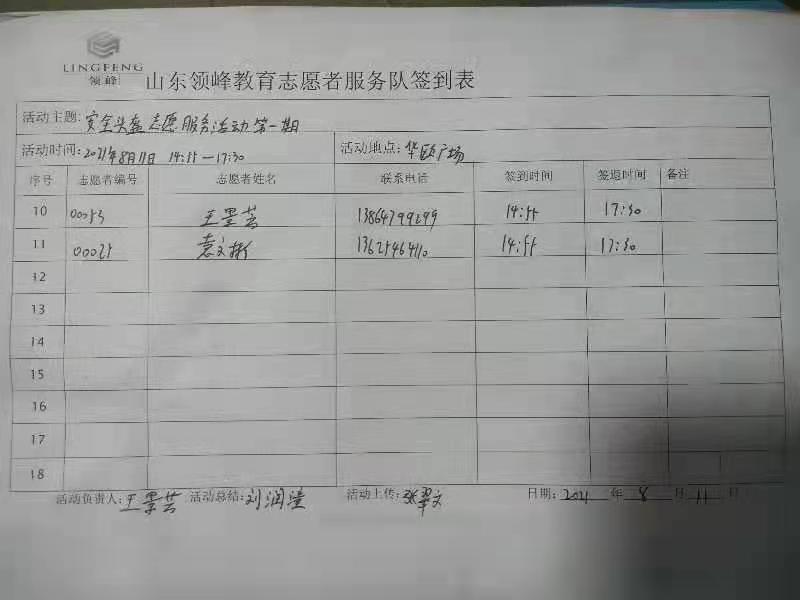 LINGFENG
领峰
山东领峰教育志愿者服务队签到表
活动主题:安全头盔志愿服务活动第一期
活动时间:2021年8月11日 14:55—17:30 活动地点:华联广场
序号 志愿者编号 志愿者姓名 联系电话 签到时间 签退时间 备注
10 00053 王墨芸 13864799299 14:55 17:30
11 00025 袁文彬 13625464110 14:55 17:30
12
13
14
15
16
17
18
活动负责人:王墨芸 活动总结:刘润潼 活动上传:张翠文 日期:2021年8月11日